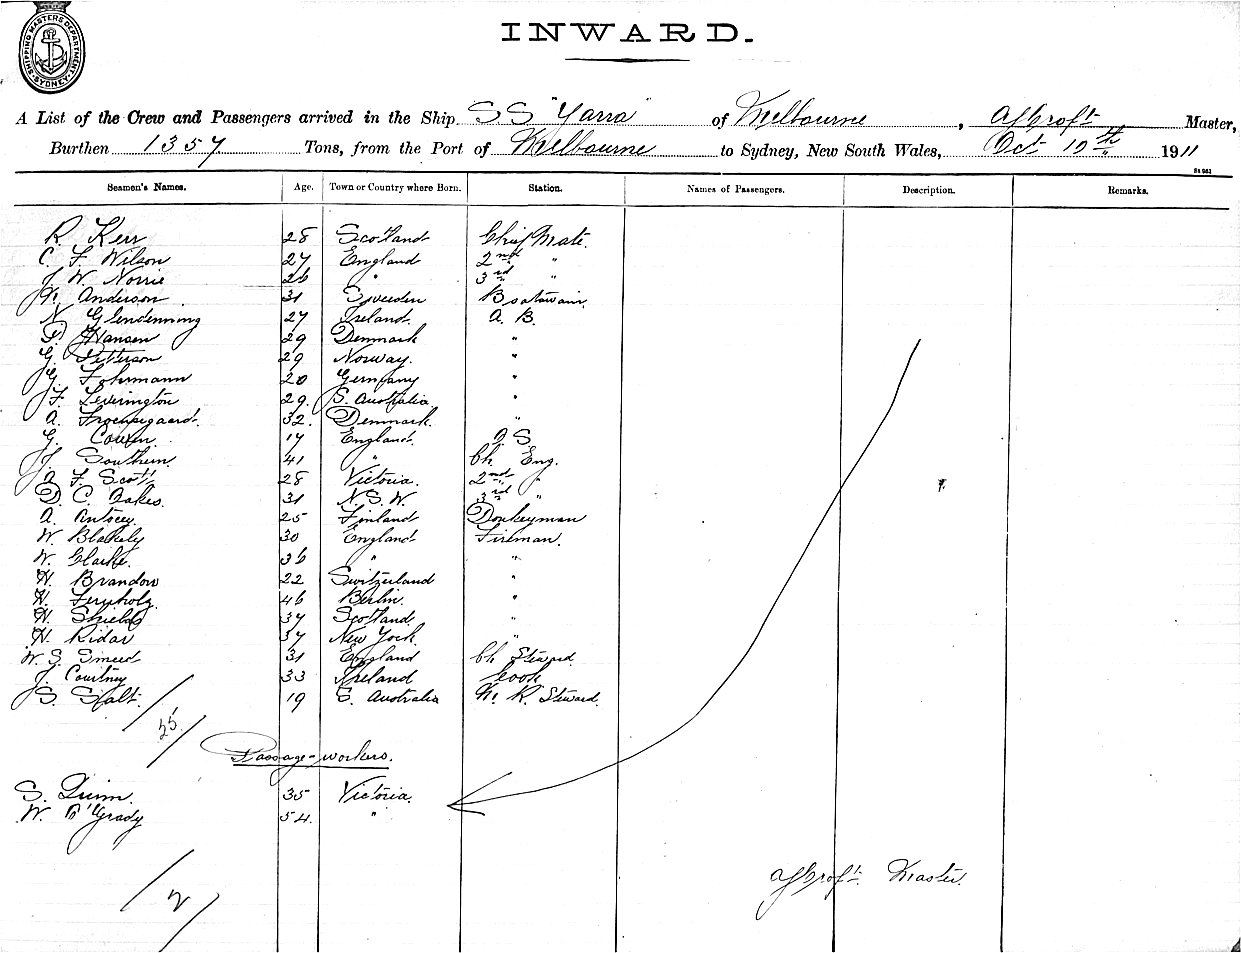 SHIPPING MASTERS DEPARTMENT SYDNEY
INWARD.
A List of the Crew and Passengers arrived in the Ship S S "Yarra" of Melbourne, Master,
Burthen 1357 Tons, from the Port of Melbourne to Sydney, New South Wales, Oct 19th 1911
Seamen's Names. Age. Town or Country where Born. Station. Names of Passengers. Description. Remarks.
R. Kerr 28 Scotland Chief Mate.
C. F. Wilson 27 England 2nd "
J. W. Norrie 26 " 3rd "
Anderson 31 Sweden Boatswain
N. Glendenning 27 Ireland. A. B.
P. Hansen 29 Denmark "
G. Petterson 29 Norway. "
G. Fohrmann 20 Germany "
F. Leverington 29. S. Australia "
A. 32. Denmark. "
G. 17 England. O. S.
J. Southern 41 " Ch. Eng.
F. Scott 28 Victoria. 2nd "
D. C. Oakes. 31 N. S. W. 3rd "
A. 25 Finland Donkeyman
W. Blakely 30 England Fireman.
W. Clarke. 36 " "
H. Brandon 22 Switzerland "
H. 46 Berlin. "
H. Shields 37 Scotland. "
H. Ridar 37 New York. "
W. S. Smeed 31 England Ch Steward
J. Courtney 33 Ireland Cook
S. Salt. 19 S. Australia M. R. Steward.
25
Passage-workers.
S. Quinn. 35 Victoria.
W. O'Grady 54. "
Master.
2